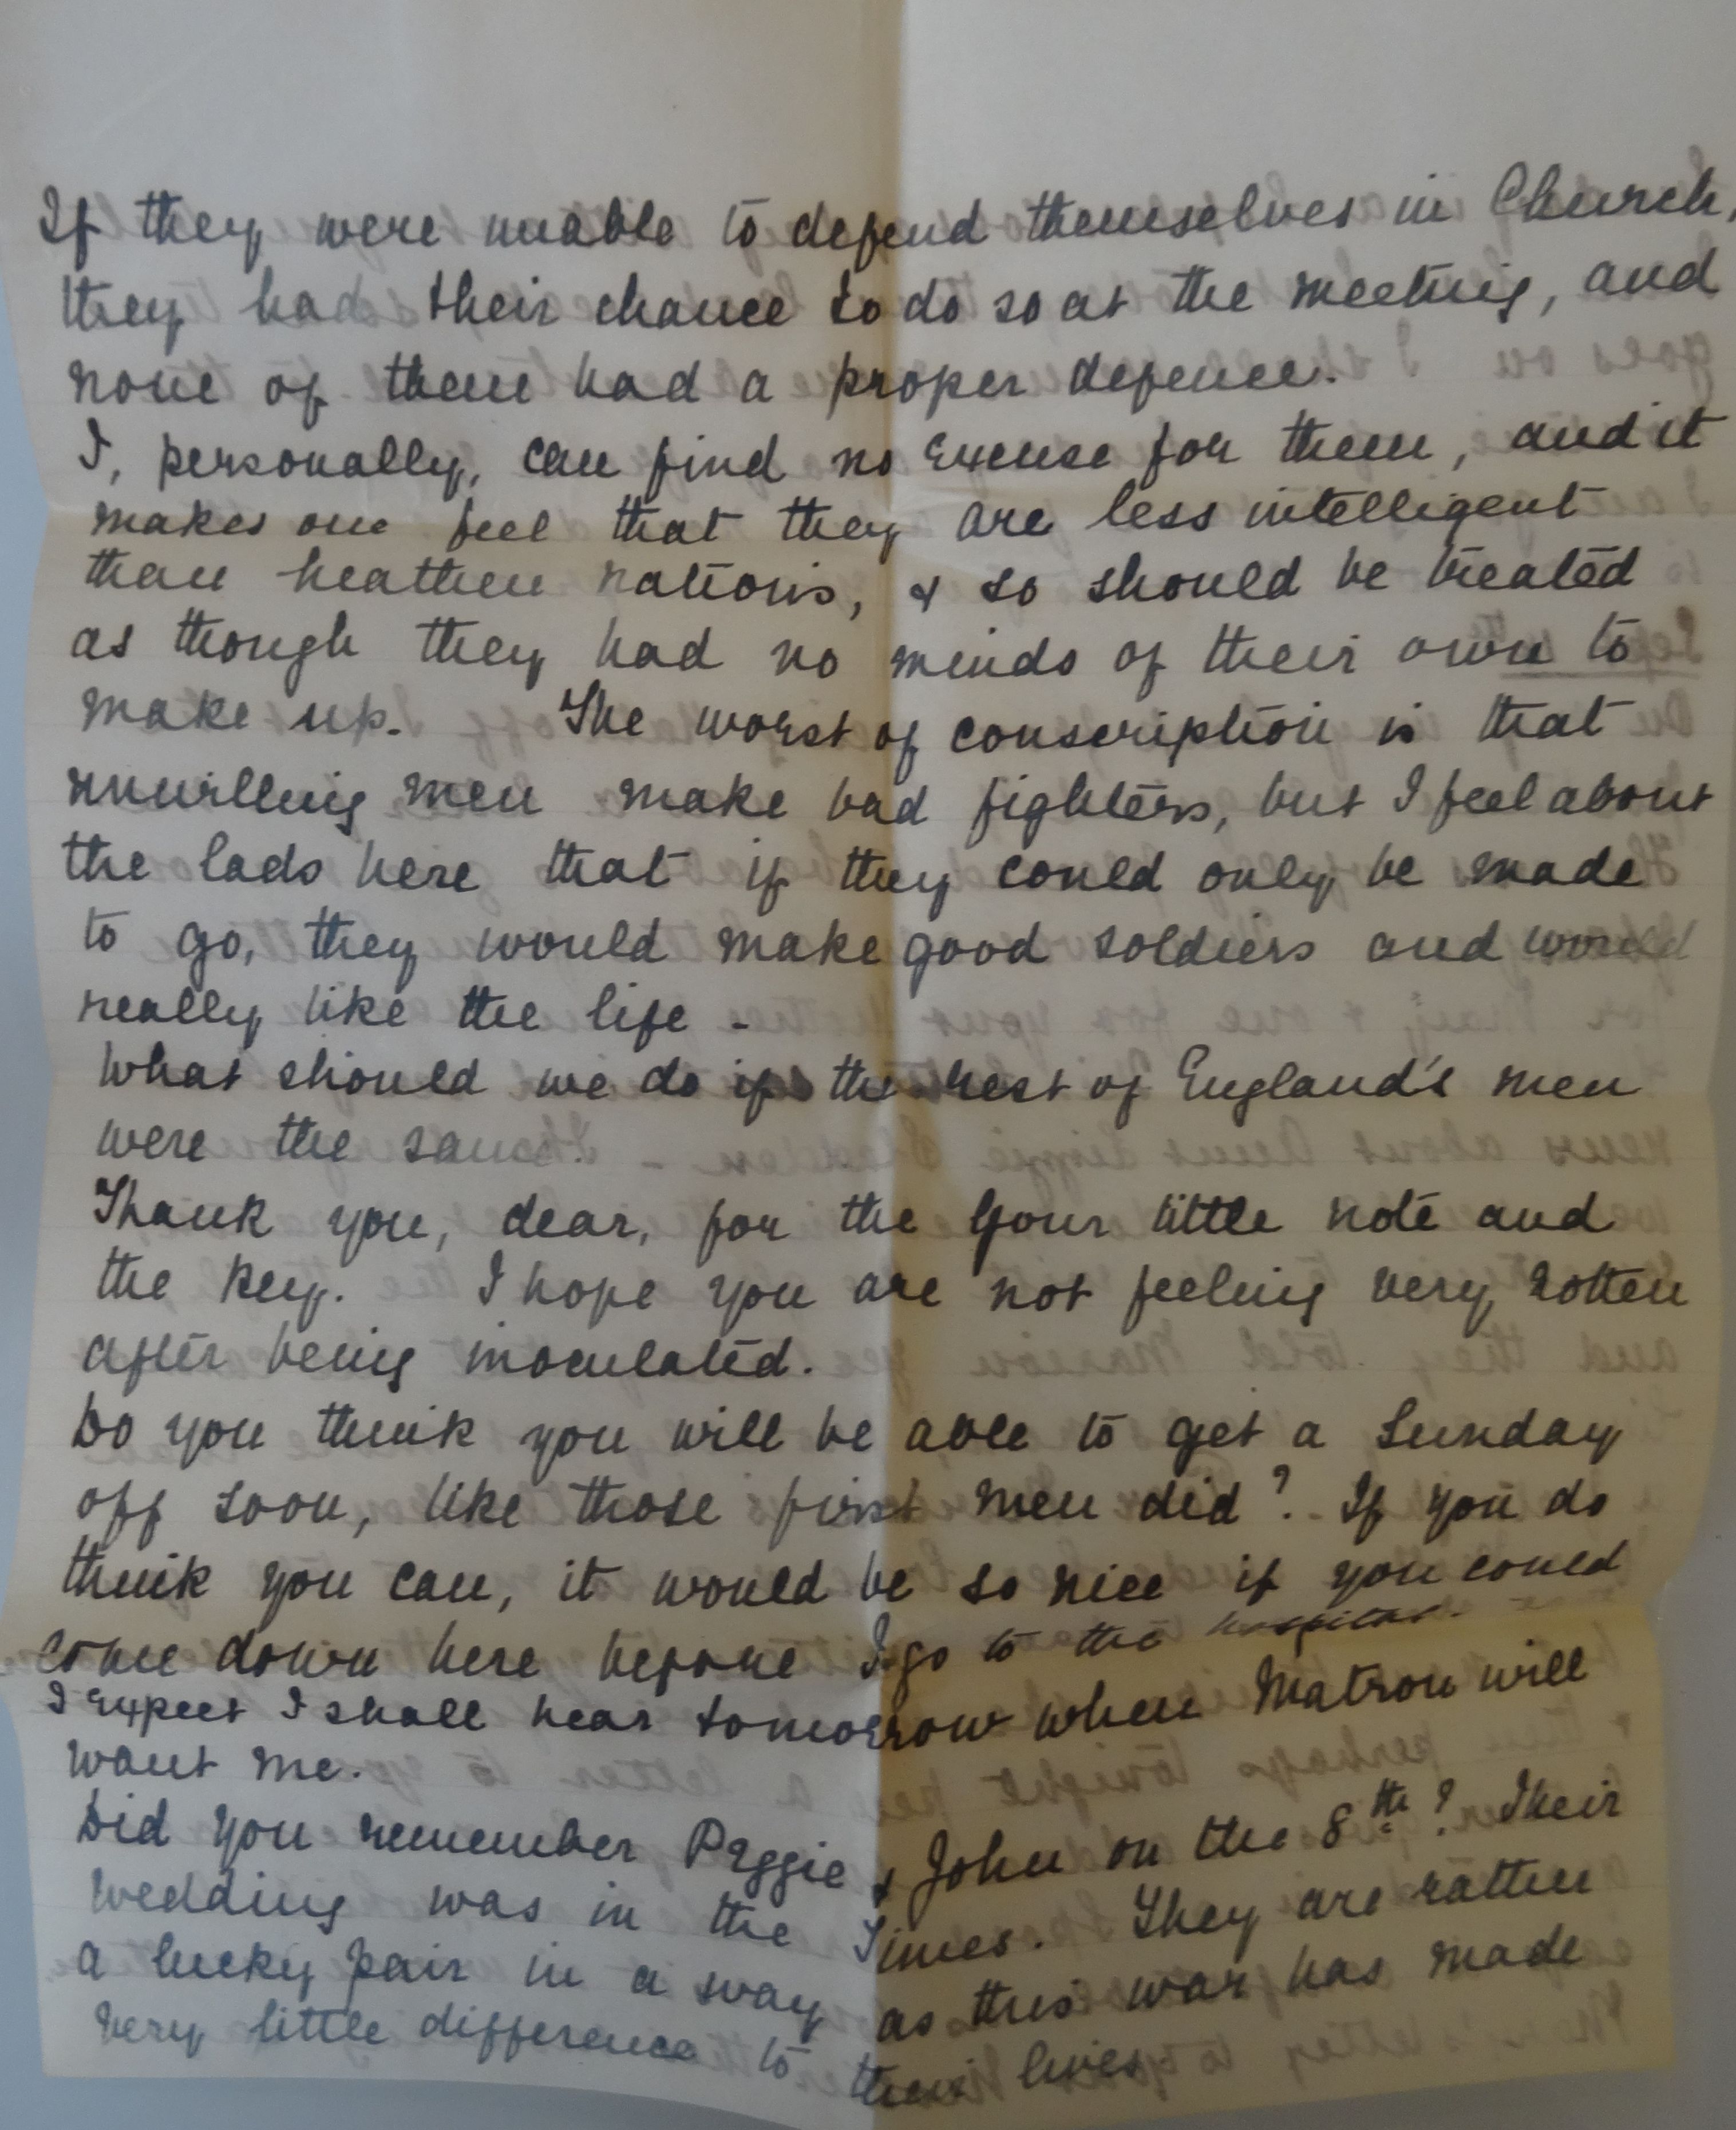 If they were unable to defend themselves in Church,
they had their chance to do so at the meeting, and
none of them had a proper defence.
I, personally, can find no excuse for them, and it
makes one feel that they are less intelligent
than heathen nations, & so should be treated
as though they had no minds of their own to
make up. The worst of conscription is that
unwilling men make bad fighters, but I feel about
the lads here that if they could only be made
to go, they would make good soldiers and would
really like the life -
What should we do if the rest of England's men
were the same?
Thank you, dear, for the your little note and
the key. I hope you are not feeling very rotten
after being inoculated.
Do you think you will be able to get a Sunday
off soon, like those first men did? If you do
think you can, it would be so nice if you could
come down here before I go to the hospital.
I expect I shall hear tomorrow when Matron will
want me.
Did you remember Peggie & John on the 8th? Their
wedding was in the Times. They are rather
a lucky pair in a way as this war has made
very little difference to their lives